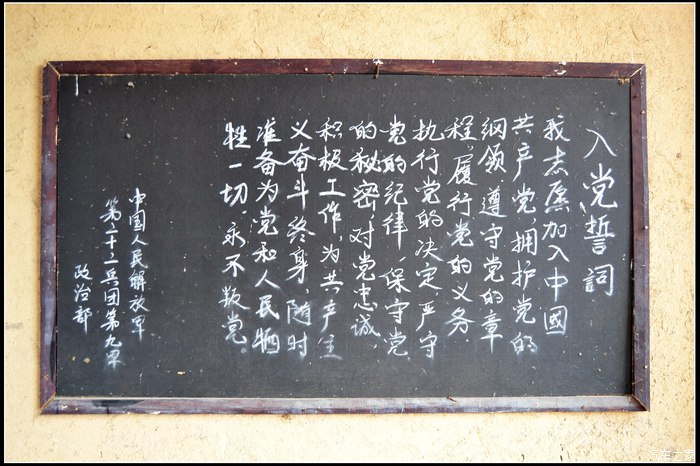 入党誓詞
我志愿加入中國
共产党,拥护党的
纲领遵守党的章
程,履行党的义务.
执行党的决定,严守
党的纪律,保守党
的秘密,对党忠诚,
积极工作,为共产主
义奋斗终身,随时
准备为党和人民牺
牲一切,永不叛党。
中國人民解放军
第二十二兵团第九军
政治部